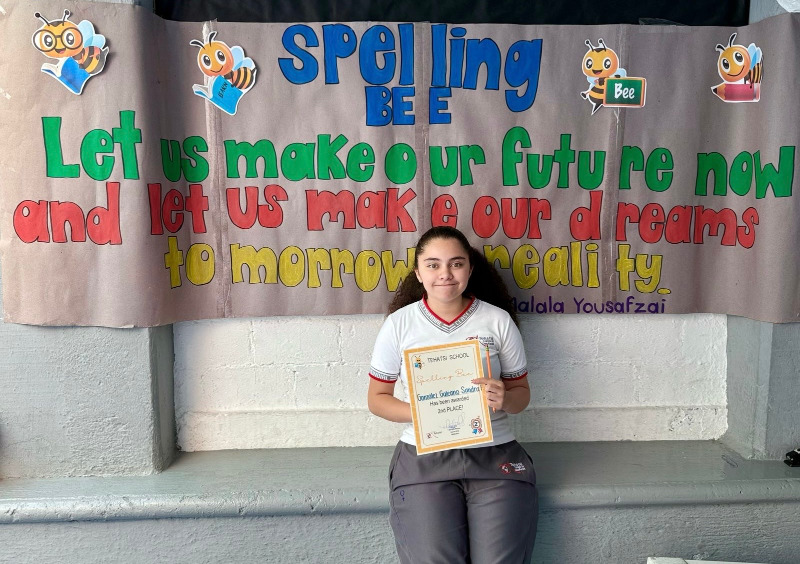 Spelling
BEE
Bee
Let us make our future now
and let us make our dreams
to morrow reality.
Malala Yousafzai
TEHATSI SCHOOL
Spelling Bee
González Galeana Sandra
Has been awarded
2nd PLACE!